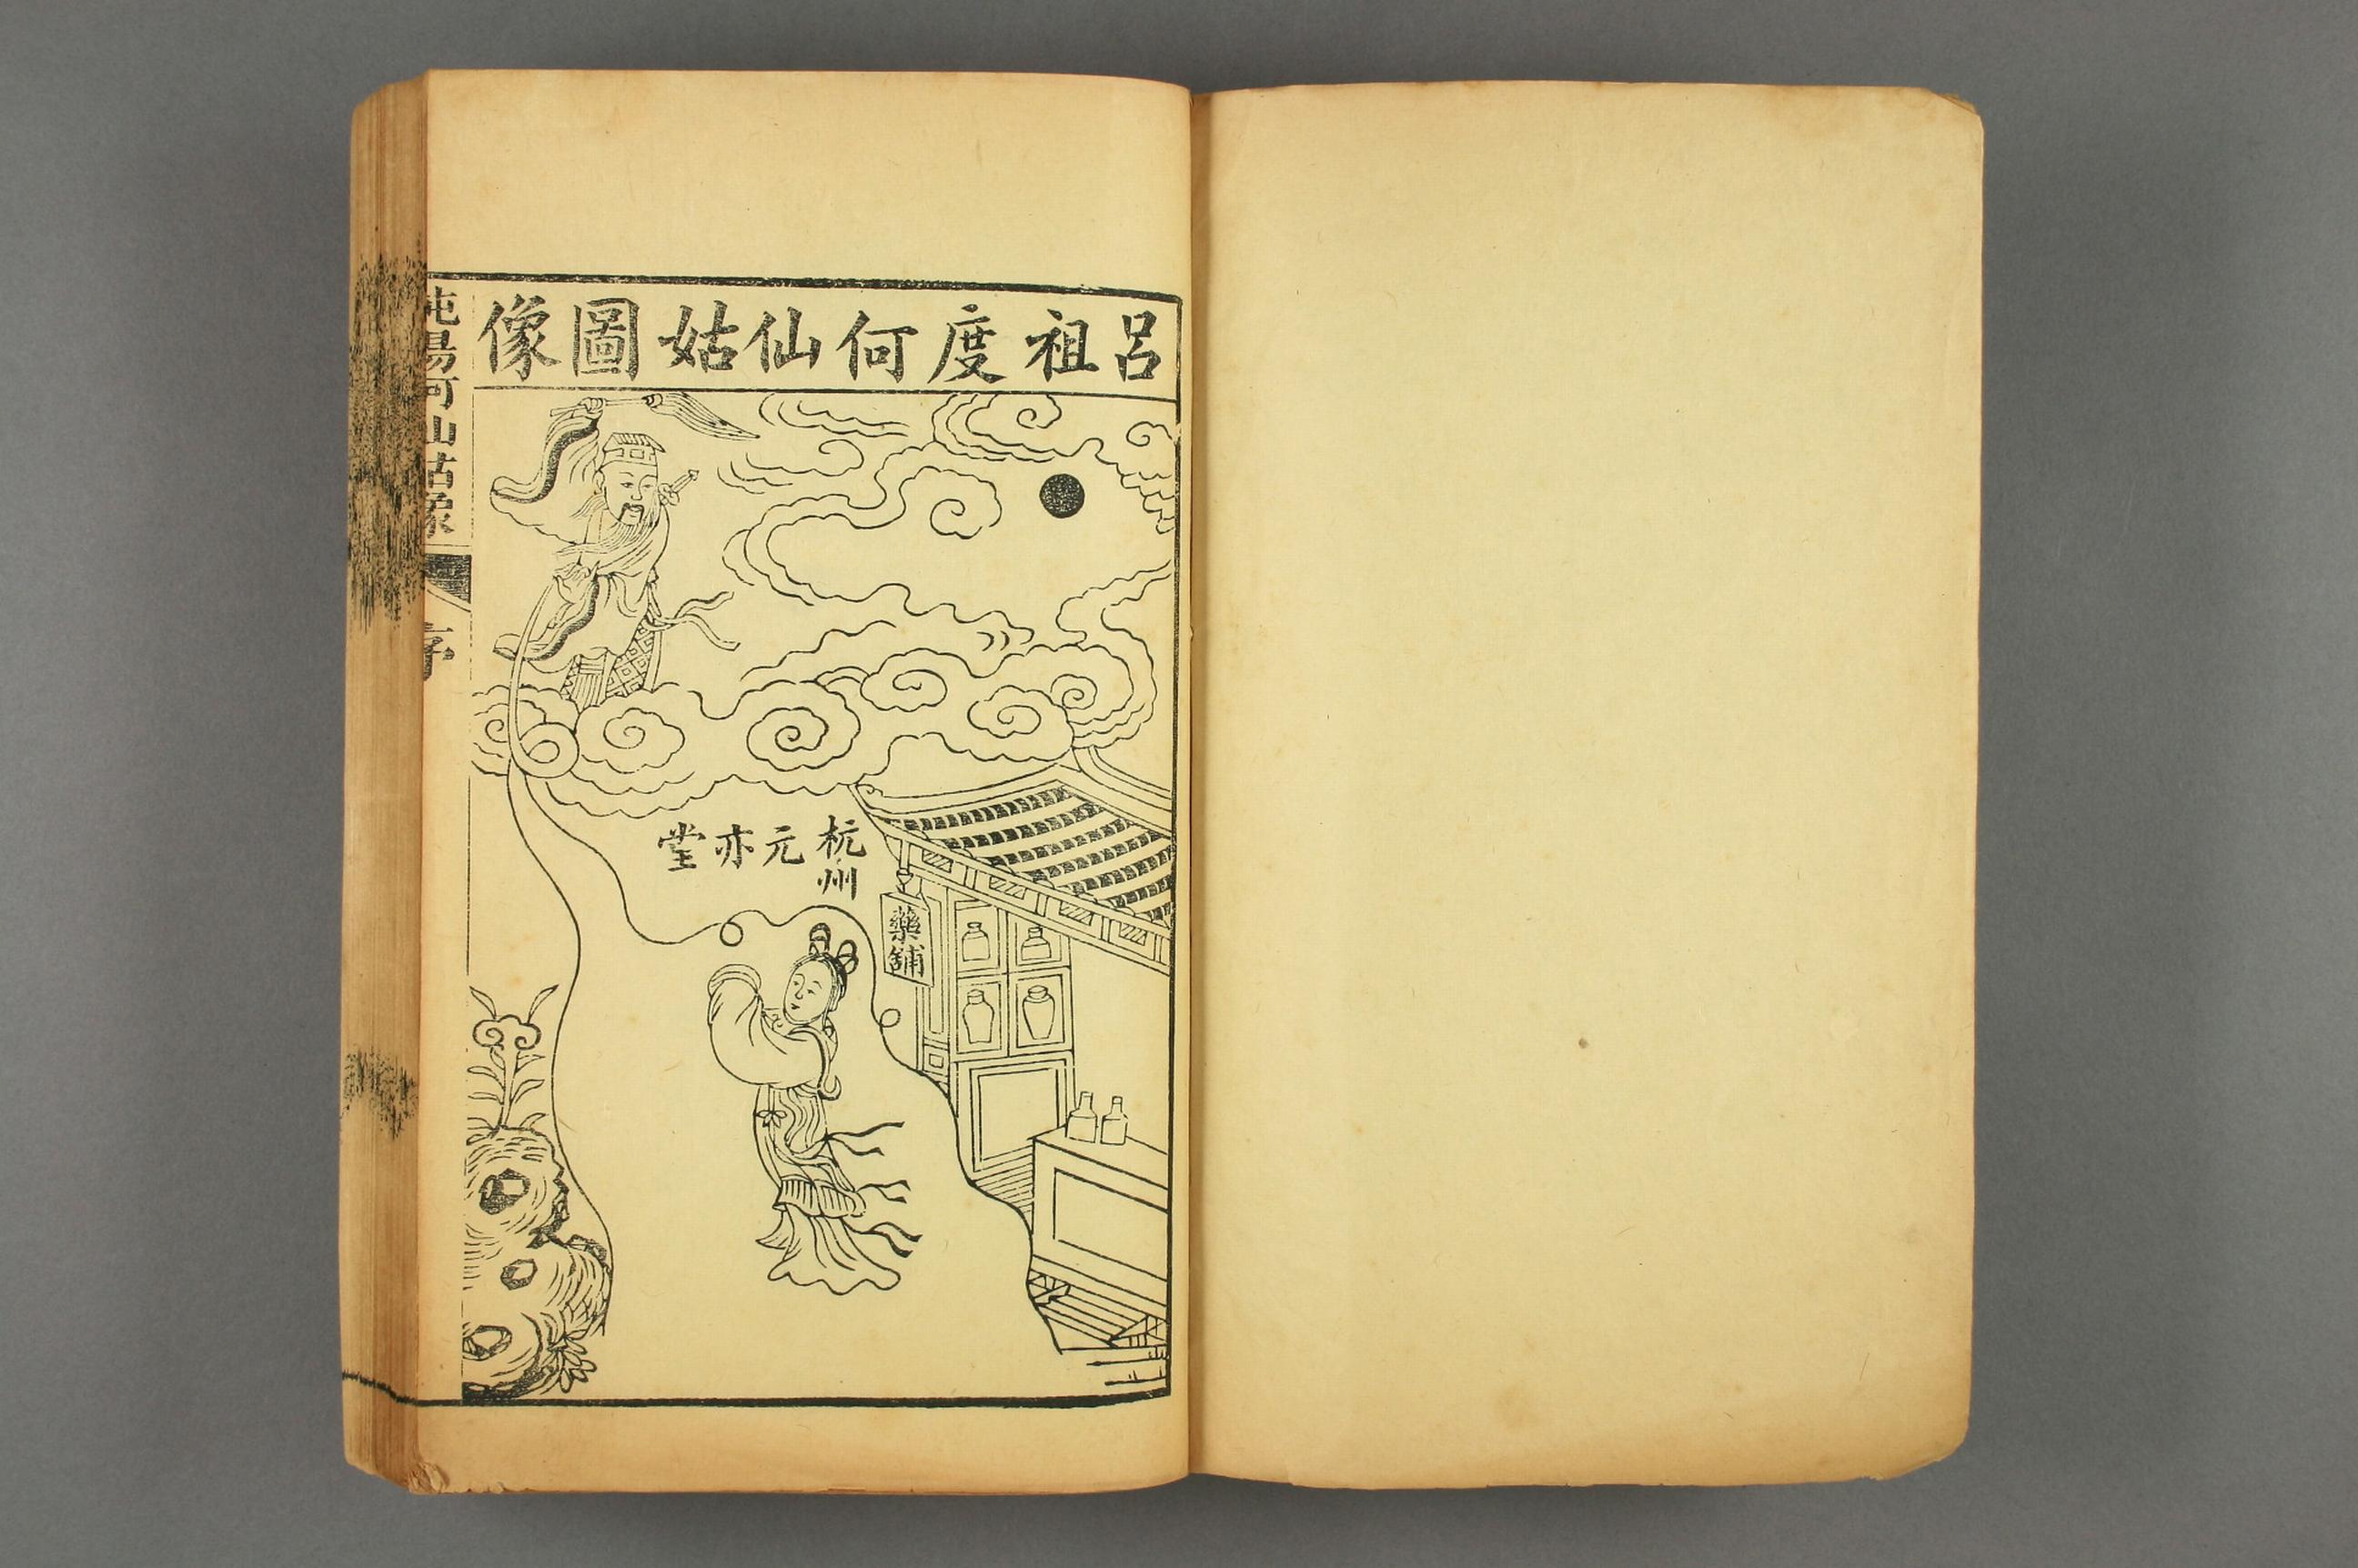 呂祖度何仙姑圖像
杭州
元亦堂
藥舖
純陽何仙姑像
序